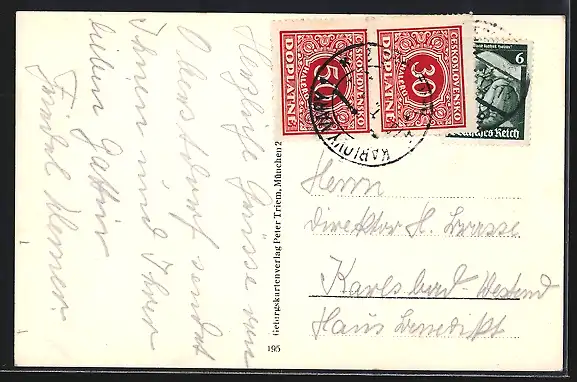 Herzliche Grüsse von
Oberstdorf sendet
Ihnen und Ihrer
lieben Gattin
Friedel Werner.
Gebirgskartenverlag Peter Triem, München 2
195
ČESKOSLOVENSKO
50
HALÉŘŮ
DOPLATNÉ
ČESKOSLOVENSKO
30
HALÉŘŮ
DOPLATNÉ
KARLOVY VARY
6
Deutsches Reich
Herrn
Direktor H.
Karlsbad-Westend
Haus Benedikt